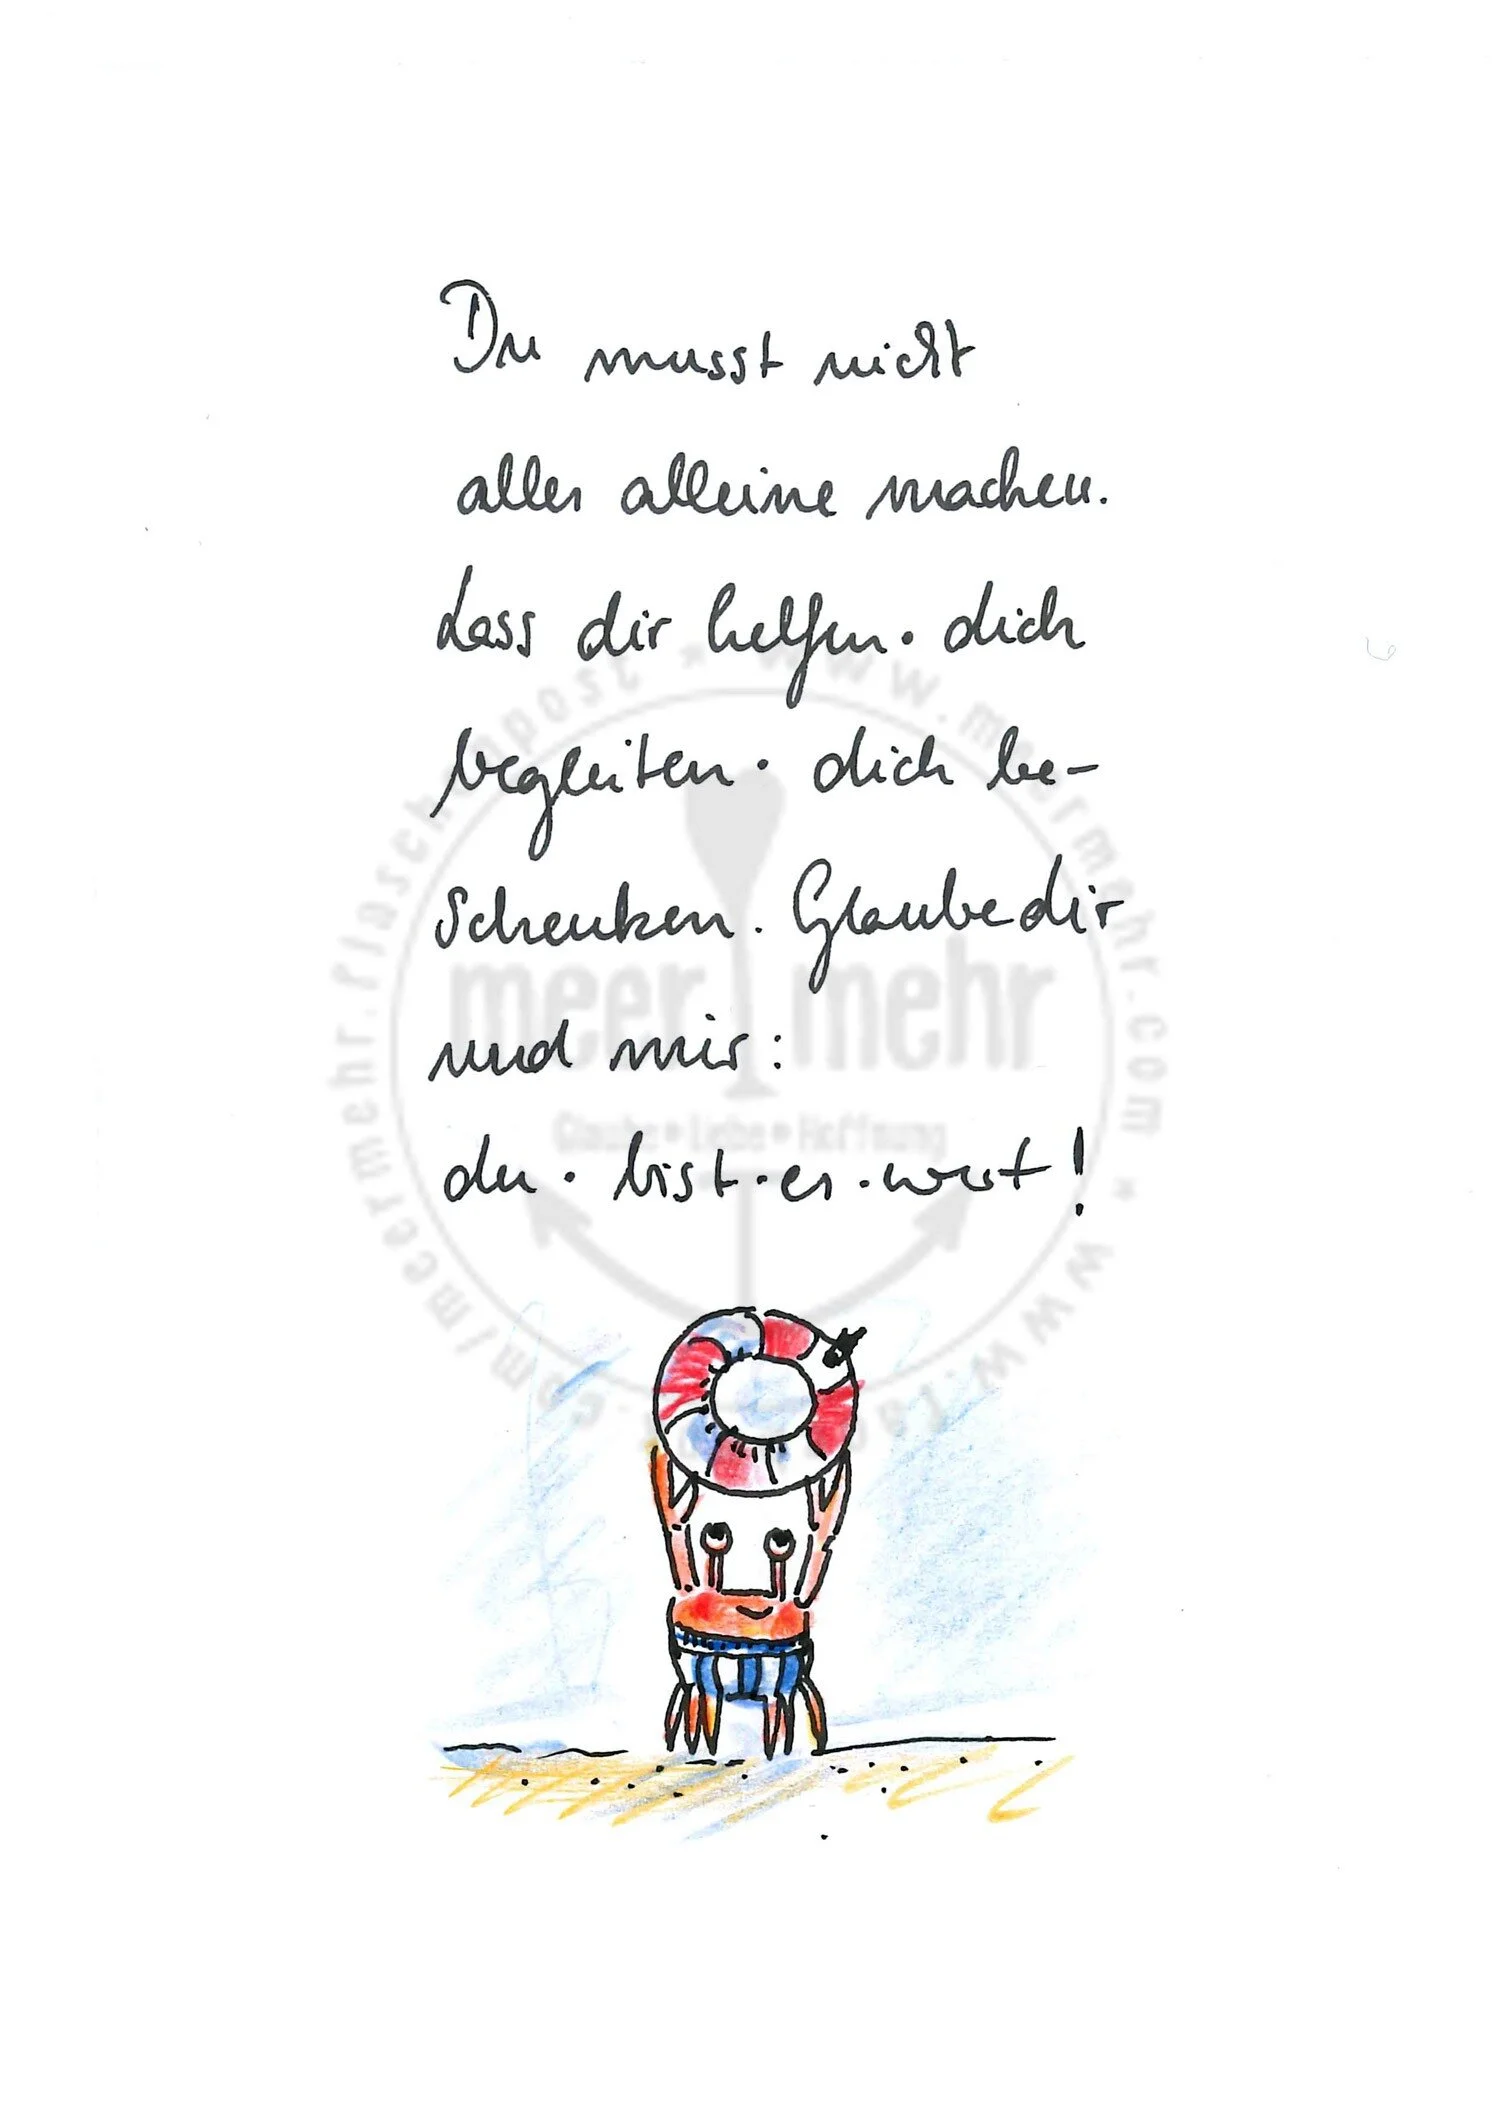 Du musst nicht
alles alleine machen.
Lass dir helfen · dich
begleiten · dich be-
schenken. Glaube dir
und mir:
du · bist · es · wert!
meer mehr
Glaube • Liebe • Hoffnung
meermehr.flaschenpost * www.meermehr.com * www.
.com/meermehr.flaschenpost